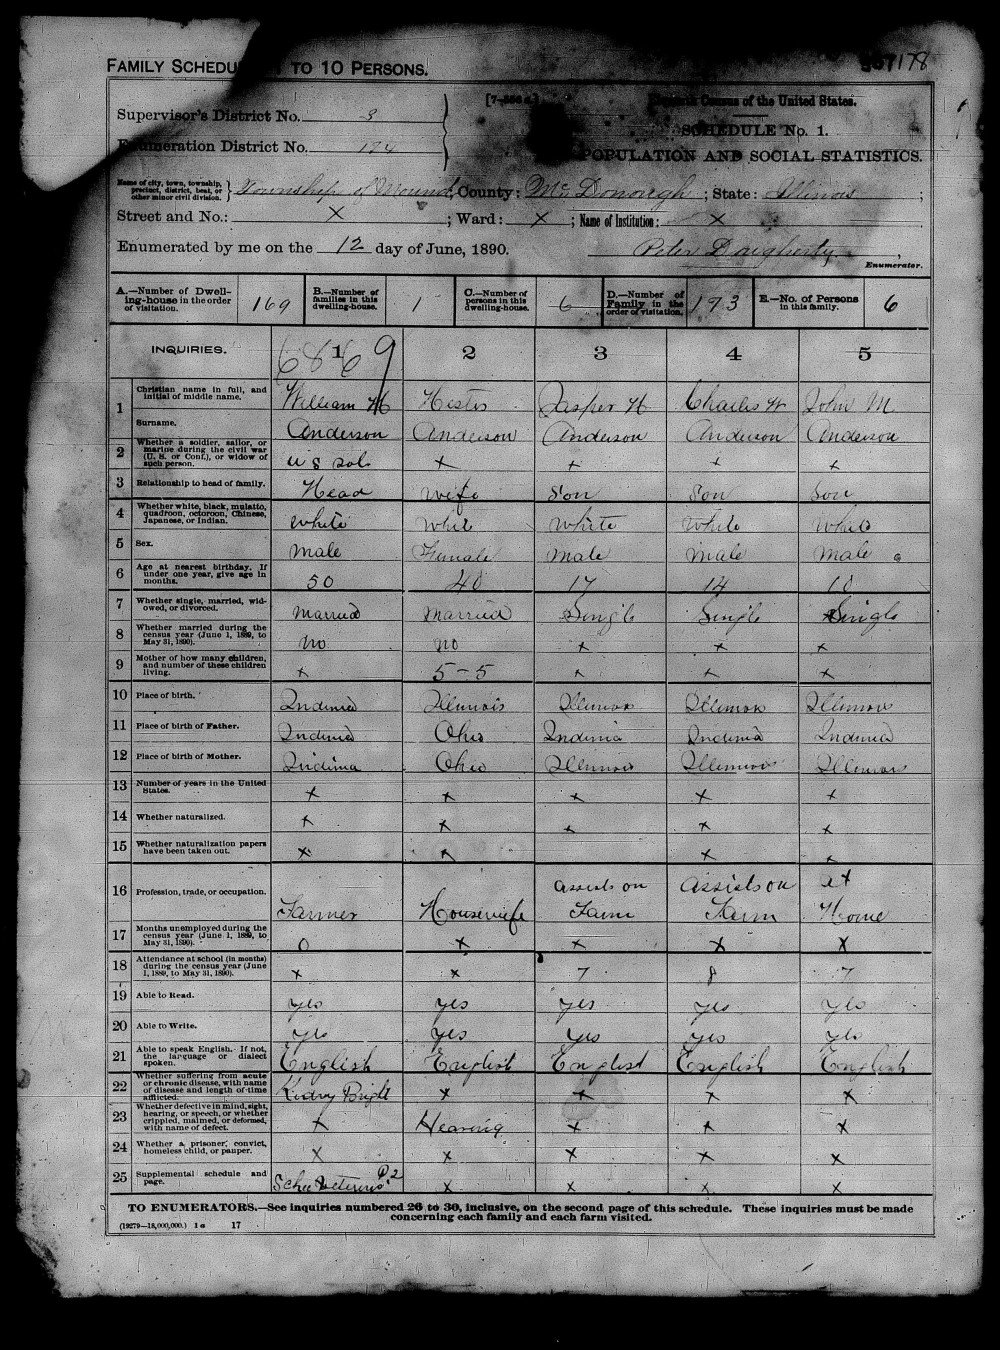 FAMILY SCHEDU TO 10 PERSONS.
178
Supervisor's District No. 3
[7-
Census of the United States.
Enumeration District No. 174
SCHEDULE No. 1.
POPULATION AND SOCIAL STATISTICS.
Name of city, town, township, precinct, district, beat, or other minor civil division. } Township of Mound, County: McDonough; State: Illinois;
Street and No.: X; Ward: X; Name of Institution: X
Enumerated by me on the 12 day of June, 1890. Peter Daugherty,
Enumerator.
A.—Number of Dwelling-house in the order of visitation. 169 B.—Number of families in this dwelling-house. 1 C.—Number of persons in this dwelling-house. 6 D.—Number of Family in the order of visitation. 173 E.—No. of Persons in this family. 6
INQUIRIES. 1 2 3 4 5
6869
1 Christian name in full, and initial of middle name. William H Hester Jasper H Charles W John M
Surname. Anderson Anderson Anderson Anderson Anderson
2 Whether a soldier, sailor, or marine during the civil war (U. S. or Conf.), or widow of such person. U S Sol X X X X
3 Relationship to head of family. Head wife Son Son Son
4 Whether white, black, mulatto, quadroon, octoroon, Chinese, Japanese, or Indian. White White White White White
5 Sex. Male Female Male Male Male
6 Age at nearest birthday. If under one year, give age in months. 50 40 17 14 10
7 Whether single, married, widowed, or divorced. Married Married Single Single Single
8 Whether married during the census year (June 1, 1889, to May 31, 1890). No No X X X
9 Mother of how many children, and number of these children living. X 5-5 X X X
10 Place of birth. Indinia Illinois Illinois Illinois Illinois
11 Place of birth of Father. Indinia Ohio Indinia Indinia Indinia
12 Place of birth of Mother. Indinia Ohio Illinois Illinois Illinois
13 Number of years in the United States. X X X X X
14 Whether naturalized. X X X X X
15 Whether naturalization papers have been taken out. X X X X
16 Profession, trade, or occupation. Farmer Housewife assists on Farm assists on Farm at Home
17 Months unemployed during the census year (June 1, 1889, to May 31, 1890). 0 X X X X
18 Attendance at school (in months) during the census year (June 1, 1889, to May 31, 1890). X X 7 8 7
19 Able to Read. yes yes yes yes yes
20 Able to Write. yes yes yes yes yes
21 Able to speak English. If not, the language or dialect spoken. English English English English English
22 Whether suffering from acute or chronic disease, with name of disease and length of time afflicted. Kidney Bright X X X X
23 Whether defective in mind, sight, hearing, or speech, or whether crippled, maimed, or deformed, with name of defect. X Hearing X X X
24 Whether a prisoner, convict, homeless child, or pauper. X X X X X
25 Supplemental schedule and page. P.2 X X X X
TO ENUMERATORS.—See inquiries numbered 26 to 30, inclusive, on the second page of this schedule. These inquiries must be made
concerning each family and each farm visited.
(19279—18,000,000.) 1 a 17